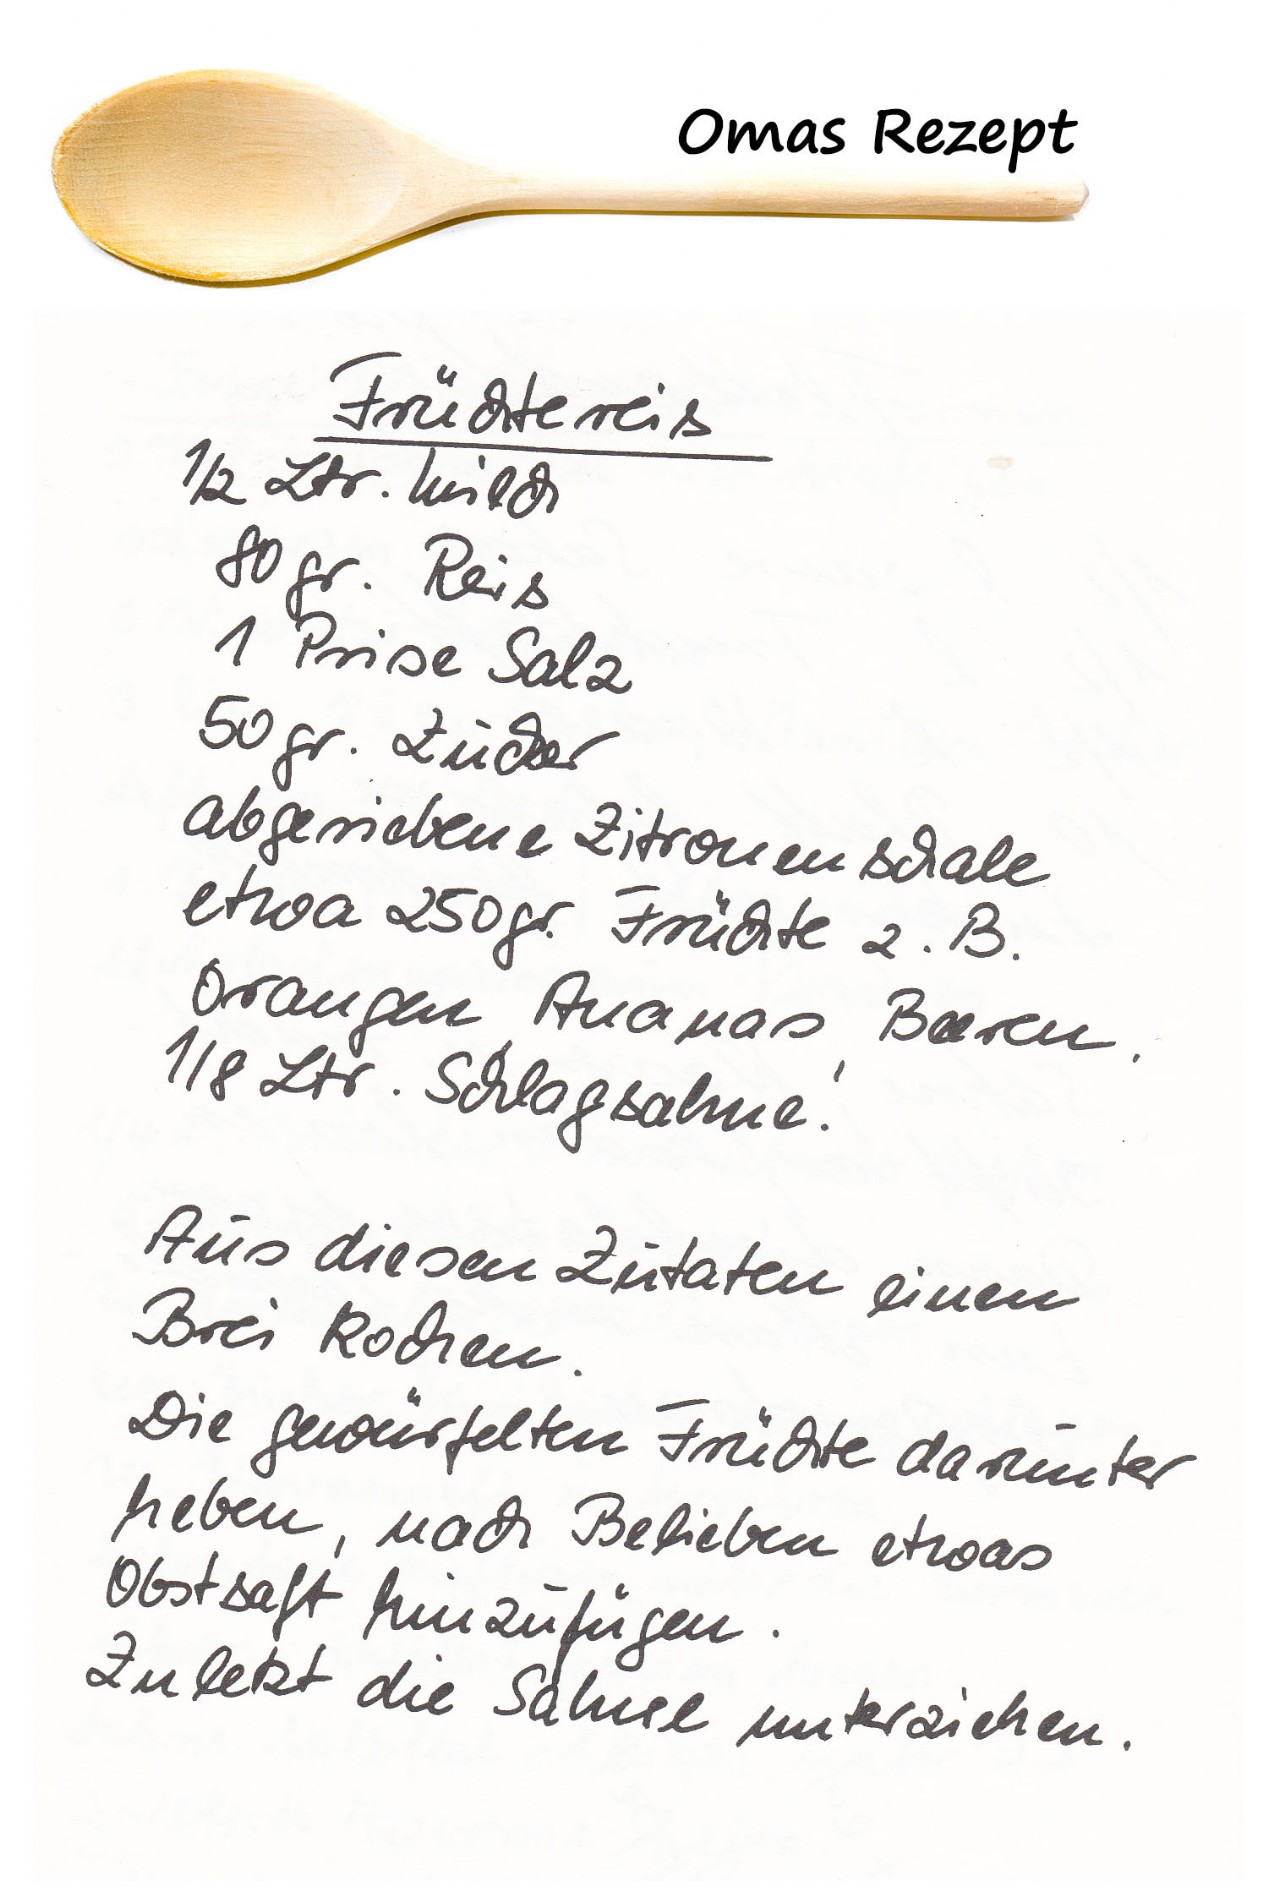 Omas Rezept
Früchtereis
1/2 Ltr. Milch
80 gr. Reis
1 Prise Salz
50 gr. Zucker
abgeriebene Zitronenschale
etwa 250 gr. Früchte z. B.
Orangen, Ananas, Beeren.
1/8 Ltr. Schlagsahne!
Aus diesen Zutaten einen
Brei kochen.
Die gewürfelten Früchte darunter
heben, nach Belieben etwas
Obstsaft hinzufügen.
Zuletzt die Sahne unterziehen.